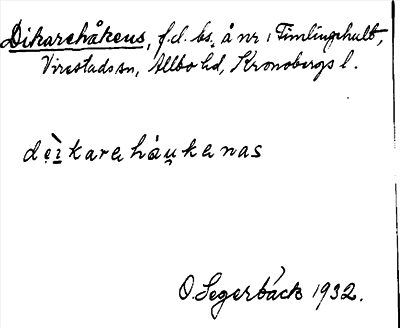 Dikarehåkens, f.d. bs. å nr 1 Timlingehult,
Virestads sn, Allbo hd, Kronobergs l.
dẹ̀ɪkarehåu̯kenas
O. Segerbäck 1932.